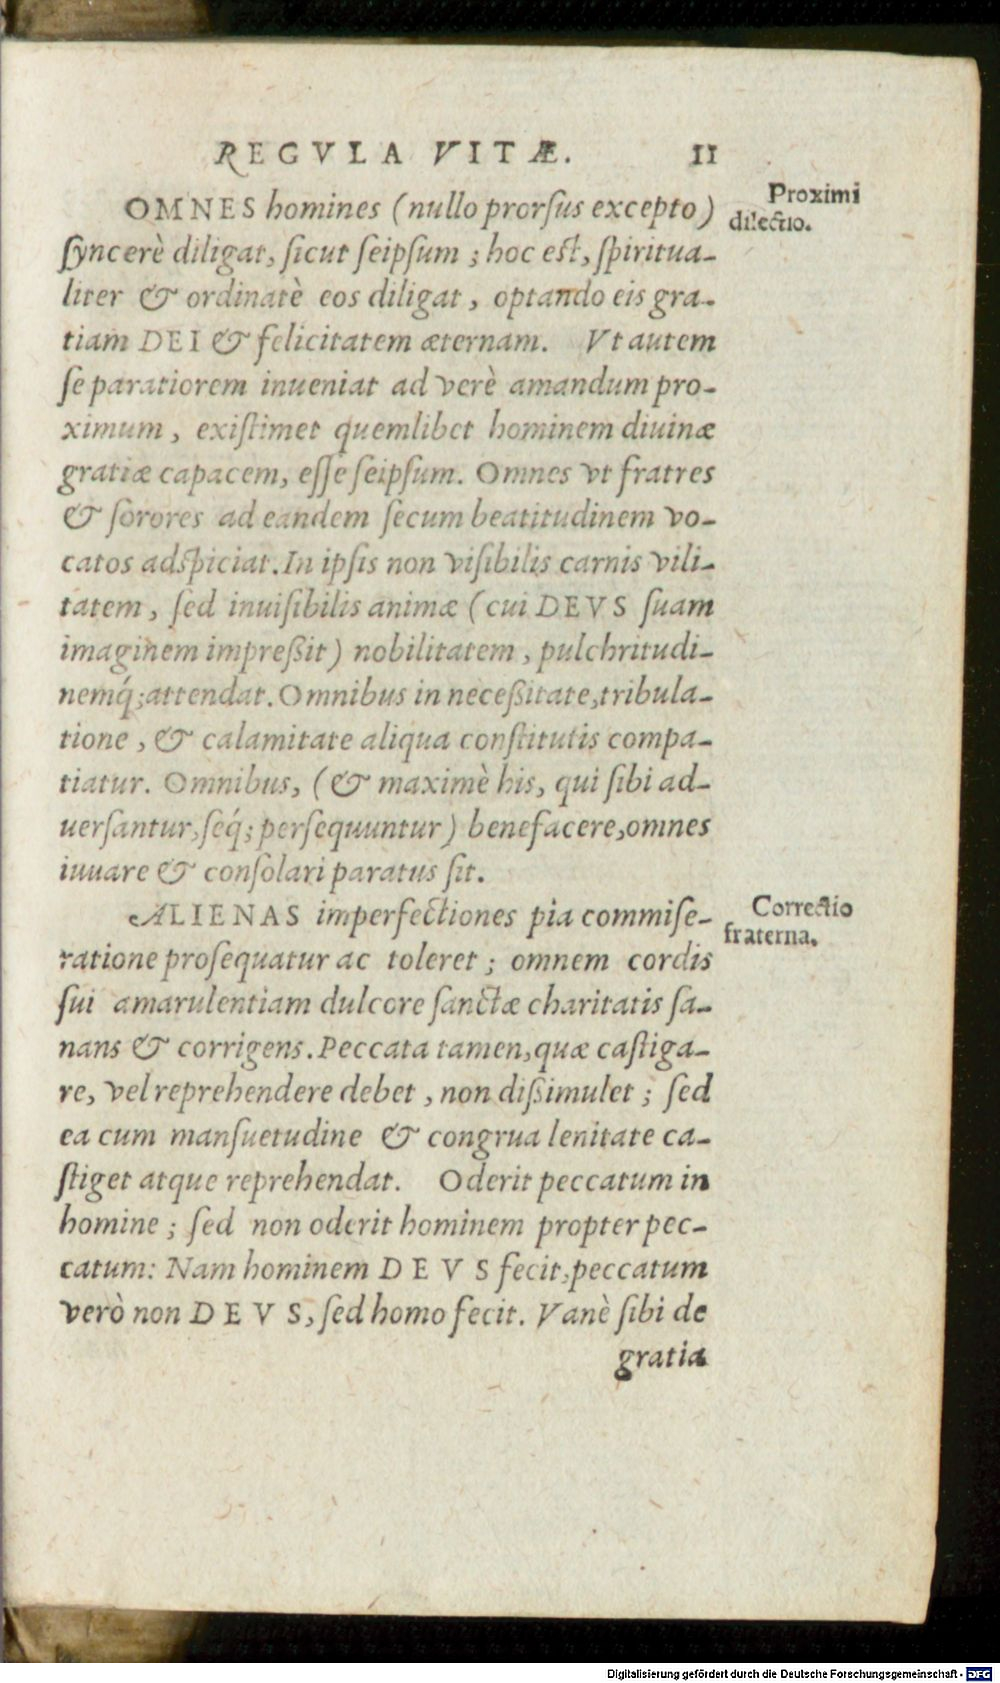 REGVLA VITÆ. 11
OMNES homines (nullo prorſus excepto)
Proximi
dilectio.
ſyncerè diligat, ſicut ſeipſum ; hoc eſt, ſpiritua-
liter & ordinatè eos diligat, optando eis gra-
tiam DEI & felicitatem æternam. Vt autem
ſe paratiorem inueniat ad verè amandum pro-
ximum, exiſtimet quemlibet hominem diuinæ
gratiæ capacem, eſſe ſeipſum. Omnes vt fratres
& ſorores ad eandem ſecum beatitudinem vo-
catos adſpiciat. In ipſis non viſibilis carnis vili-
tatem, ſed inuiſibilis animæ (cui DEVS ſuam
imaginem impreßit) nobilitatem, pulchritudi-
nemq́; attendat. Omnibus in neceßitate, tribula-
tione, & calamitate aliqua conſtitutis compa-
tiatur. Omnibus, (& maximè his, qui ſibi ad-
uerſantur, ſeq́; perſequuntur) benefacere, omnes
iuuare & conſolari paratus ſit.
ALIENAS imperfectiones pia commiſe-
Correctio
fraterna.
ratione proſequatur ac toleret ; omnem cordis
ſui amarulentiam dulcore ſanctæ charitatis ſa-
nans & corrigens. Peccata tamen, quæ caſtiga-
re, vel reprehendere debet, non dißimulet ; ſed
ea cum manſuetudine & congrua lenitate ca-
ſtiget atque reprehendat. Oderit peccatum in
homine ; ſed non oderit hominem propter pec-
catum: Nam hominem DEVS fecit, peccatum
verò non DEVS, ſed homo fecit. Vanè ſibi de
gratia
Digitalisierung gefördert durch die Deutsche Forschungsgemeinschaft - DFG